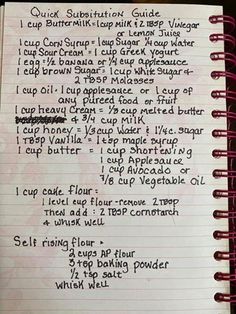 Quick Subsitution Guide
1 cup Buttermilk = 1 cup milk & 2 TBSP Vinegar
or Lemon Juice
1 cup Corn Syrup = 1 cup Sugar ¼ cup Water
1 cup Sour Cream = 1 cup Greek Yogurt
1 egg = ½ banana or ¼ cup applesauce
1 cup brown Sugar = 1 cup White Sugar &
2 TBSP Molasses
1 cup Oil = 1 cup applesauce or 1 cup of
any pureed food or fruit
1 cup heavy Cream = ⅓ cup melted butter
& ¾ cup Milk
1 cup honey = ⅓ cup Water & 1 ¼c. sugar
1 TBSP Vanilla = 1 tbsp maple syrup
1 cup butter = 1 cup Shortening
1 cup Applesauce
1 cup Avocado or
7/8 cup Vegetable oil
1 cup cake flour =
1 level cup flour - remove 2 TBSP
Then add : 2 TBSP cornstarch
& whisk well
Self rising flour =
2 cups AP flour
3 tsp baking powder
½ tsp salt
whisk well